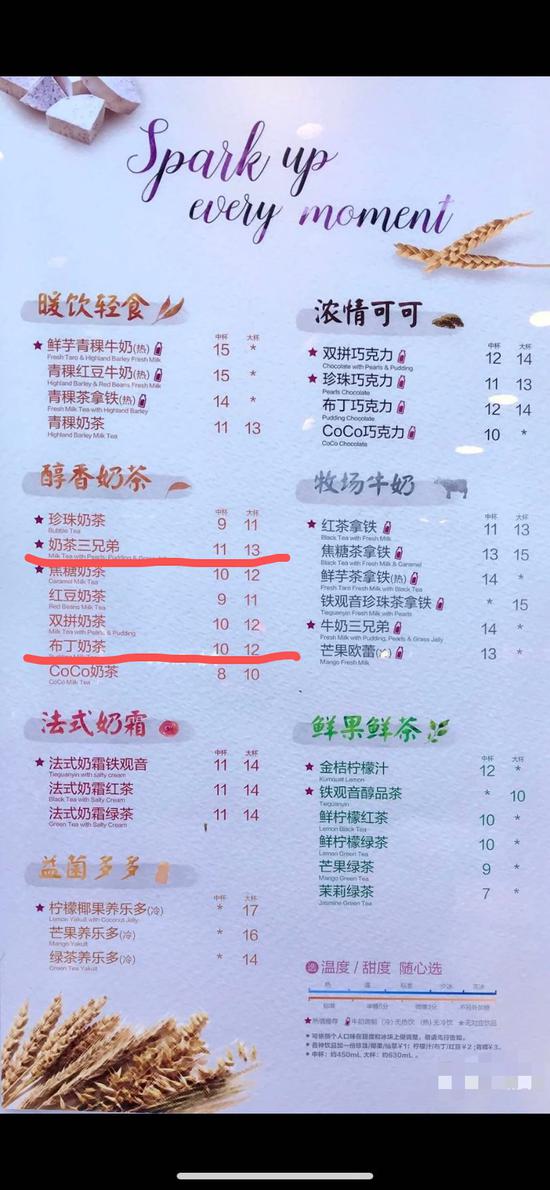 Spark up
every moment
暖饮轻食
中杯 大杯
★ 鲜芋青稞牛奶(热) 15 *
Fresh Taro & Highland Barley Fresh Milk
青稞红豆牛奶(热) 15 *
Highland Barley & Red Beans Fresh Milk
青稞茶拿铁(热) 14 *
Fresh Milk Tea with Highland Barley
青稞奶茶 11 13
Highland Barley Milk Tea
醇香奶茶
中杯 大杯
★ 珍珠奶茶 9 11
Bubble Tea
★ 奶茶三兄弟 11 13
Milk Tea with Pearls, Pudding & Grass
★ 焦糖奶茶 10 12
Caramel Milk Tea
红豆奶茶 9 11
Red Beans Milk Tea
双拼奶茶 10 12
Milk Tea with Pearls & Pudding
布丁奶茶 10 12
CoCo奶茶 8 10
CoCo Milk Tea
法式奶霜
中杯 大杯
★ 法式奶霜铁观音 11 14
Tieguanyin with salty cream
法式奶霜红茶 11 14
Black Tea with Salty Cream
法式奶霜绿茶 11 14
Green Tea with Salty Cream
益菌多多
中杯 大杯
★ 柠檬椰果养乐多(冷) * 17
Lemon Yakult with Coconut Jelly
芒果养乐多(冷) * 16
Mango Yakult
绿茶养乐多(冷) * 14
Green Tea Yakult
浓情可可
中杯 大杯
★ 双拼巧克力 12 14
Chocolate with Pearls & Pudding
★ 珍珠巧克力 11 13
Pearls Chocolate
布丁巧克力 12 14
Pudding Chocolate
CoCo巧克力 10 *
CoCo Chocolate
牧场牛奶
中杯 大杯
★ 红茶拿铁 11 13
Black Tea with Fresh Milk
焦糖茶拿铁 13 15
Black Tea with Fresh Milk & Caramel
鲜芋茶拿铁(热) 14 *
Fresh Taro Fresh Milk with Black Tea
铁观音珍珠茶拿铁 * 15
Tieguanyin Fresh Milk with Pearls
★ 牛奶三兄弟 14 *
Fresh Milk with Pudding, Pearls & Grass Jelly
芒果欧蕾 13 *
Mango Fresh Milk
鲜果鲜茶
中杯 大杯
★ 金桔柠檬汁 12 *
Kumquat Lemon
★ 铁观音醇品茶 * 10
Tieguanyin
鲜柠檬红茶 10 *
Lemon Black Tea
鲜柠檬绿茶 10 *
Lemon Green Tea
芒果绿茶 9 *
Mango Green Tea
茉莉绿茶 7 *
Jasmine Green Tea
温度 / 甜度 随心选